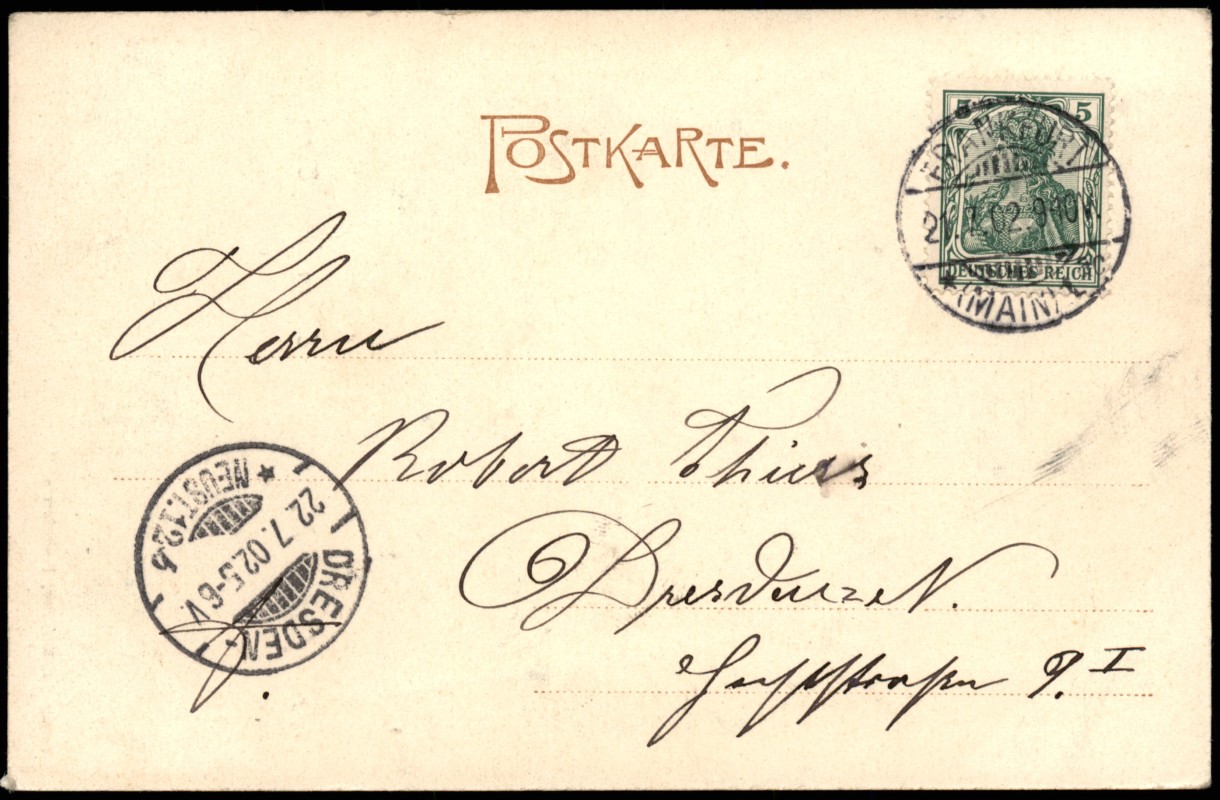 POSTKARTE.
5 5
DEUTSCHES REICH
FRANKFURT
21.7.02.9-10V.
* (MAIN) 1.
Herrn
Robert Thiess
Dresden N.
I
DRESDEN-
NEUST.12
*
22.7.02.5-6V.